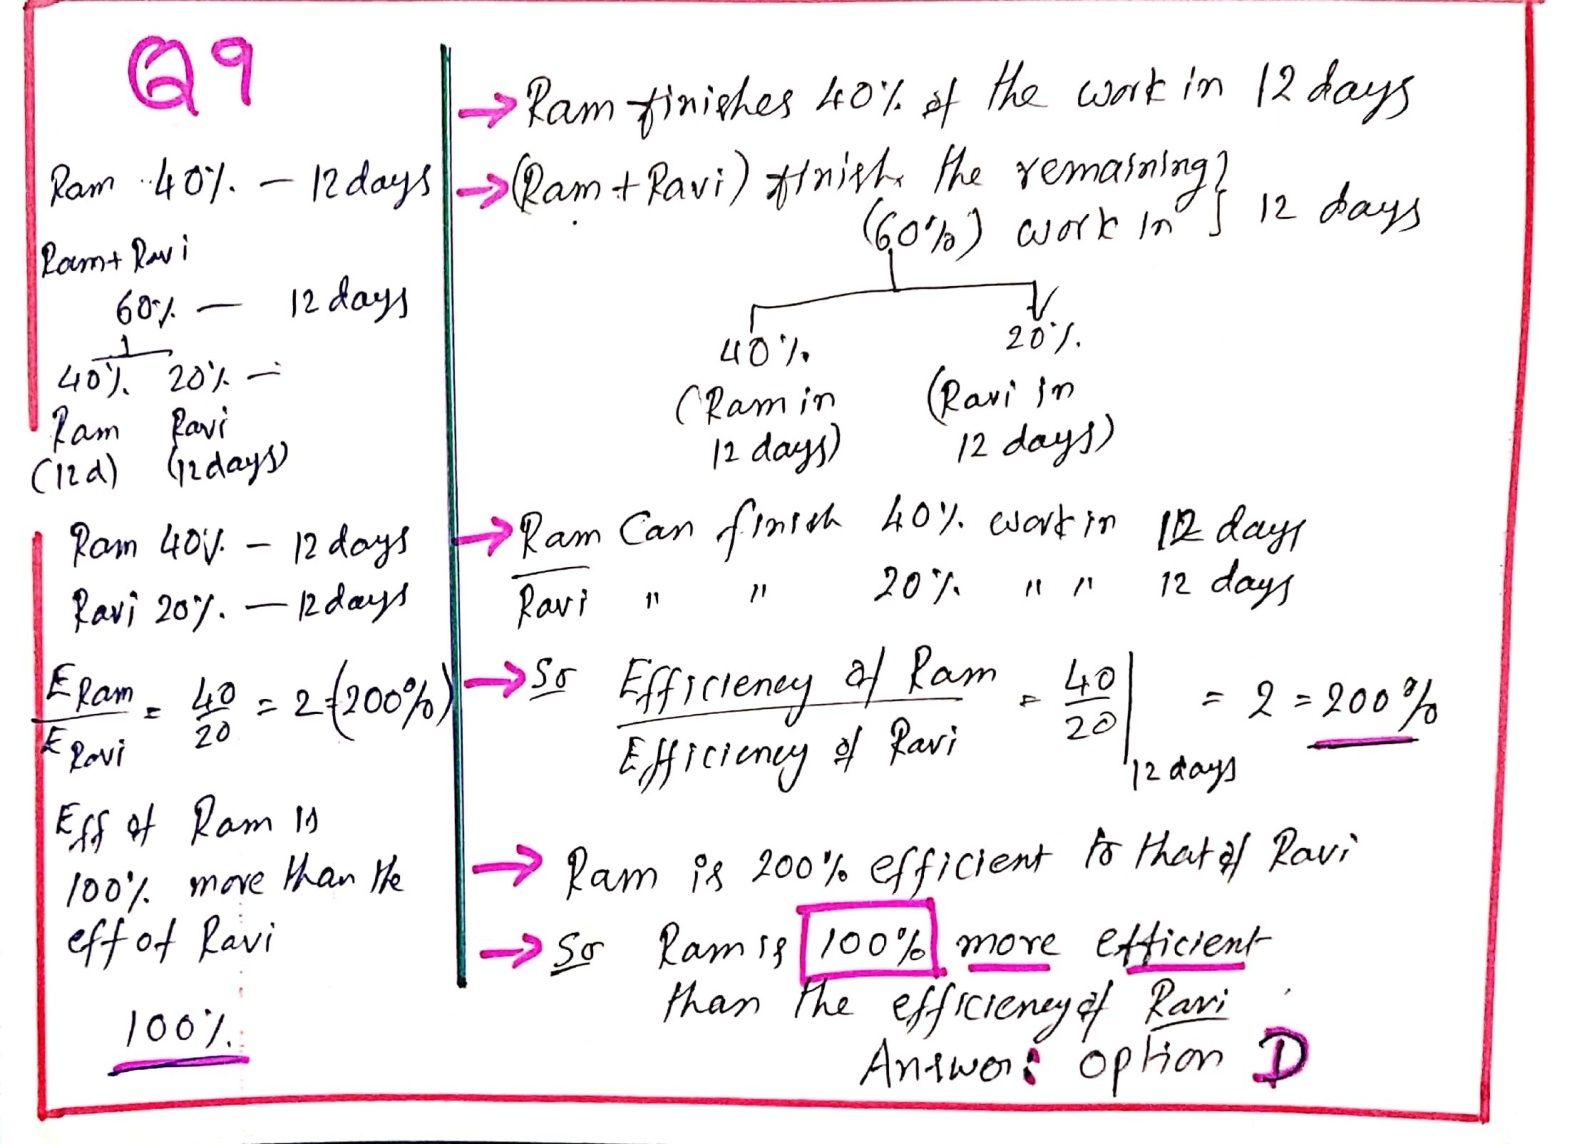 Q9
Ram 40% – 12 days
Ram + Ravi
60% – 12 days
40% 20% –
Ram Ravi
(12d) (12 days)
Ram 40% – 12 days
Ravi 20% – 12 days
E Ram / E Ravi = 40/20 = 2 (200%)
Eff of Ram is
100% more than the
eff of Ravi
100%
→ Ram finishes 40% of the work in 12 days
→ (Ram + Ravi) finish the remaining
(60%) work in } 12 days
40% 20%
(Ram in (Ravi in
12 days) 12 days)
→ Ram Can finish 40% work in 12 days
Ravi " " 20% " " 12 days
→ So Efficiency of Ram / Efficiency of Ravi = 40/20 | 12 days = 2 = 200%
→ Ram is 200% efficient to that of Ravi
→ So Ram is 100% more efficient
than the efficiency of Ravi
Answer: option D